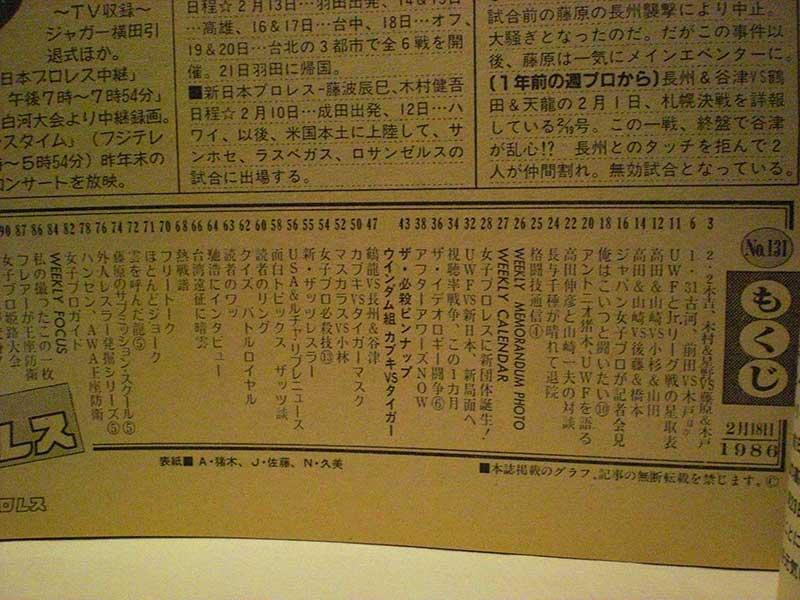 ～TV収録～
ジャガー横田引
退式ほか。
日本プロレス中継」
午後7時～7時54分」
白河大会より中継録画。
スタイム」（フジテレ
～5時54分）昨年末の
コンサートを放映。
日程☆2月13日…羽田出発、14＆15日
…高雄、16＆17日…台中、18日…オフ、
19＆20日…台北の3都市で全6戦を開
催。21日羽田に帰国。
■新日本プロレス－藤波辰巳、木村健吾
日程☆2月10日…成田出発、12日…ハ
ワイ、以後、米国本土に上陸して、サ
ンホセ、ラスベガス、ロサンゼルスの
試合に出場する。
試合前の藤原の長州襲撃により中止。
大騒ぎとなったのだ。だがこの事件以
後、藤原は一気にメインエベンターに。
(1年前の週プロから)長州＆谷津VS鶴
田＆天龍の2月1日、札幌決戦を詳報
している2/19号。この一戦、終盤で谷津
が乱心!?　長州とのタッチを拒んで2
人が仲間割れ。無効試合となっている。
No.131
もくじ
2月18日
1986
3 2・2木古、木村＆星野VS藤原＆木戸
6 1・31古河、前田VS木戸ほか
11 UWFとJr.リーグ戦の星取表
12 高田＆山崎VS小杉＆山田
14 高田＆山崎VS後藤＆橋本
16 ジャパン女子プロが記者会見
18 俺はこいつと闘いたい⑩
20 アントニオ猪木、UWFを語る
22 高田伸彦と山崎一夫の対談
24 長与千種が晴れて退院
25 格闘技通信④
26 WEEKLY MEMORANDUM PHOTO
27 WEEKLY CALENDAR
28 女子プロレスに新団体誕生！
32 UWFVS新日本、新局面へ
34 視聴率戦争、この1カ月
36 ザ・イデオロギー闘争⑥
38 アフターアワーズNOW
43 ザ・必殺ピンナップ
ウイングム組 カブキVSタイガー
47 鶴龍VS長州＆谷津
50 カブキVSタイガーマスク
52 マスカラスVS小林
54 女子プロ必殺技⑬
55 新・ザッツレスラー
56 USA＆ルチャ・リブレニュース
58 面白トピックス、ザッツ談
60 読者のリング
62 クイズ、バトルロイヤル
63 読者のワッ
64 馳浩にインタビュー
66 台湾遠征に暗雲
68 熱戦譜
70 フリートーク
71 ほとんどジョーク
72 雲を呼んだ龍⑤
74 藤原のサブミッション・スクール⑤
76 外人レスラー発掘シリーズ⑤
78 ハンセン、AWA王座防衛
82 女子プロガイド
84 WEEKLY FOCUS
86 私の撮ったこの一枚
87 フレアーが王座防衛
90 女子プロ姫路大会
表紙■A・猪木、J・佐藤、N・久美
■本誌掲載のグラフ、記事の無断転載を禁じます。©
レス
プロレス